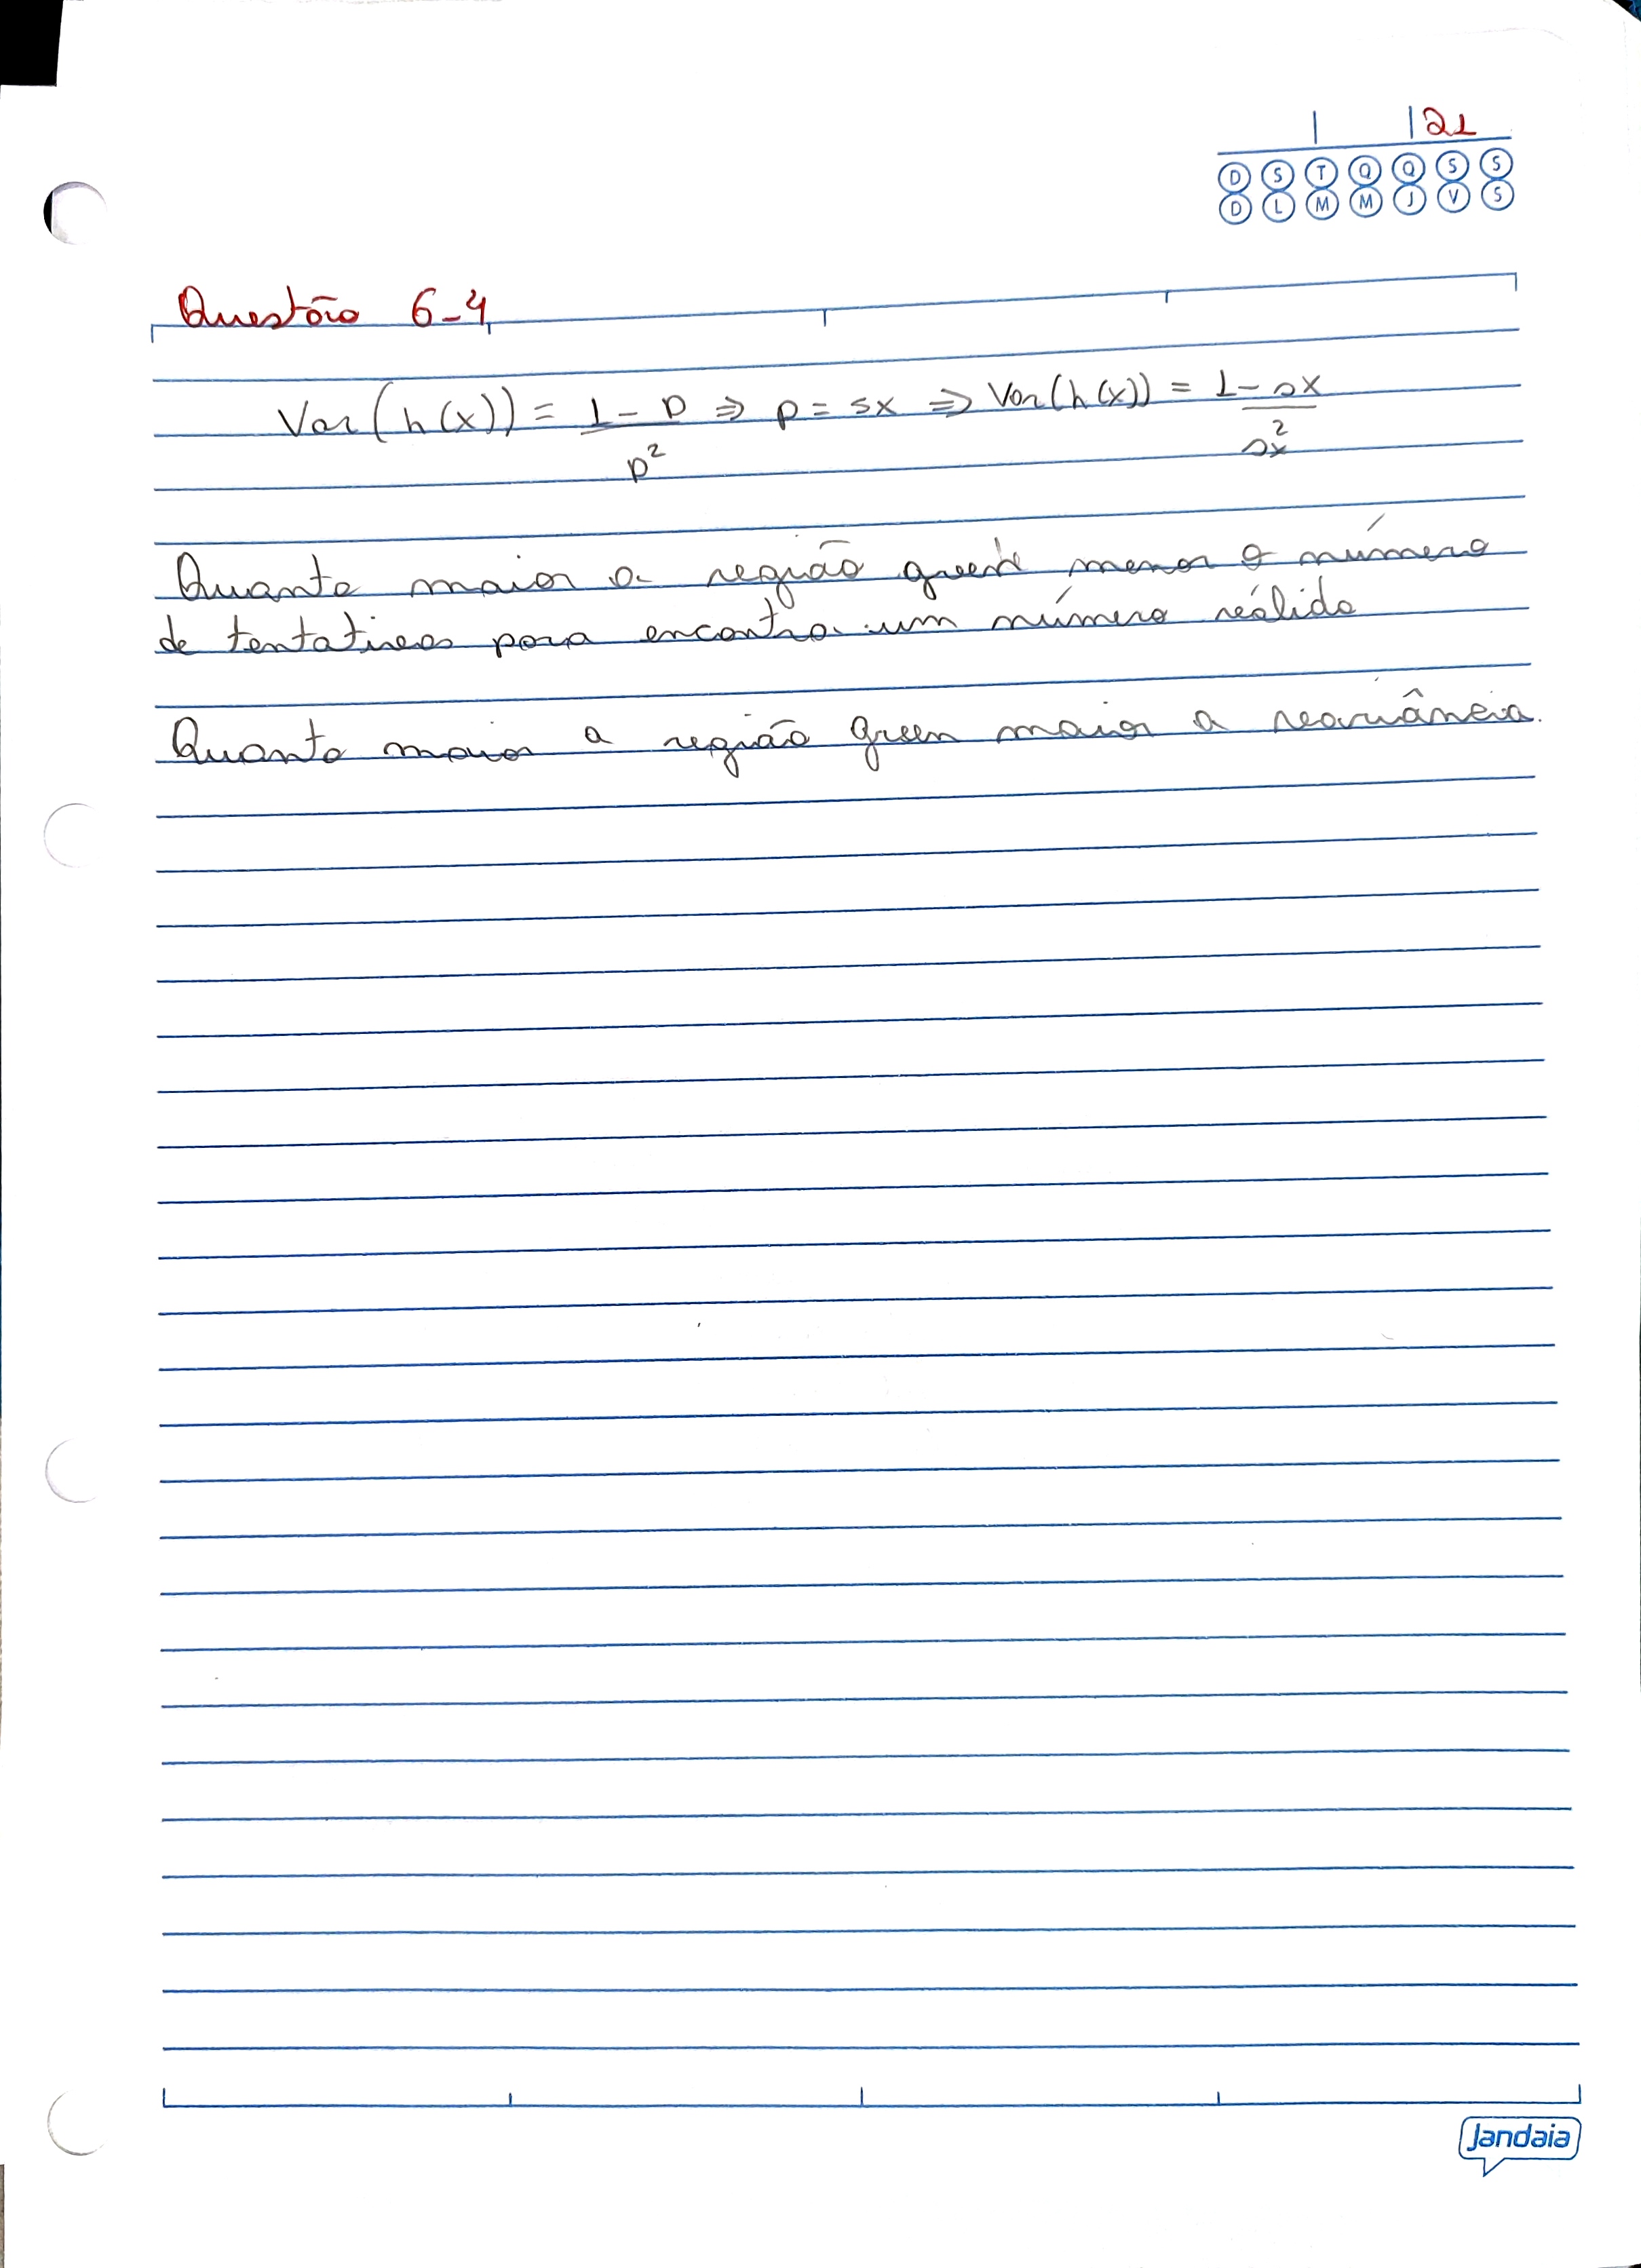 21
D S T Q Q S S
D L M M J V S
Questão 6-4
Var(h(x)) = 1 - p / p² ⇒ p = sx ⇒ Var(h(x)) = 1 - sx / sx²
Quanto maior a região green menor o número
de tentativas para encontra um número válido
Quanto maior a região green maior a variância.
Jandaia